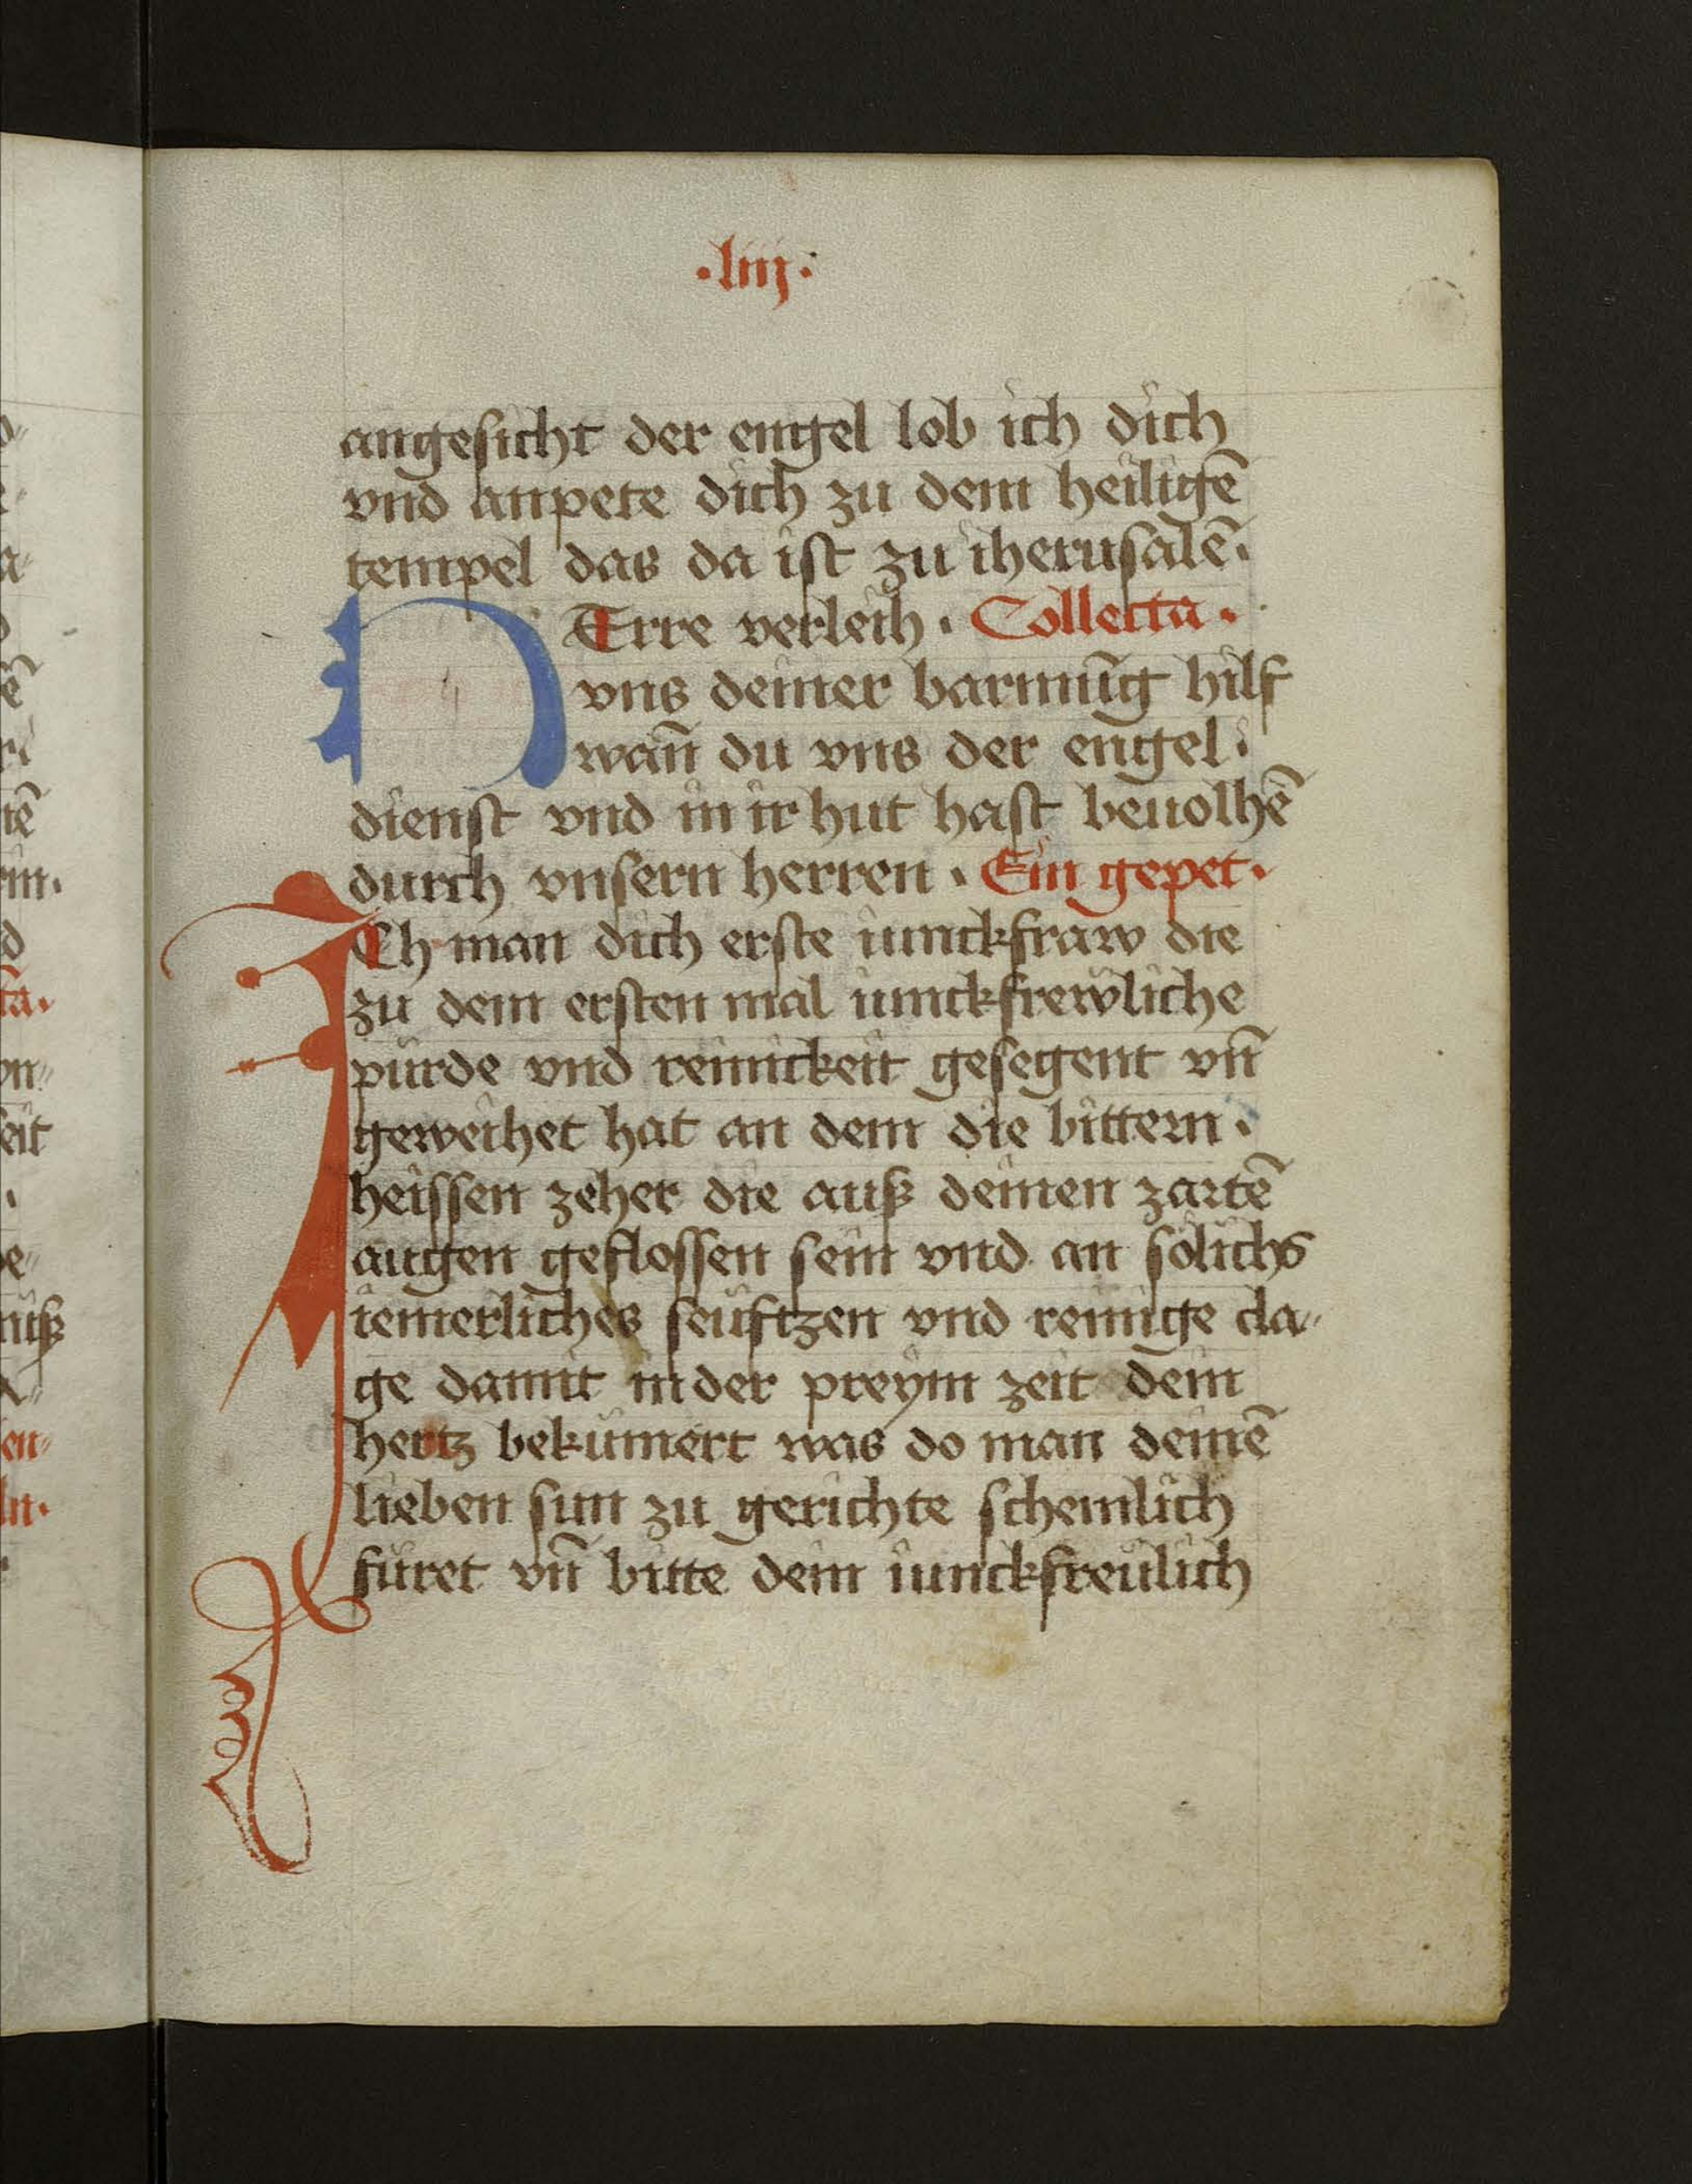 ·liiij·
angesicht der engel lob ich dich
vnd anpete dich zu dem heiligē
tempel das da ist zu iherusalē·
HErre verleih · Collecta ·
vns deiner barmūg hilf
wañ du vns der engel·
dienst vnd in ir hut hast beuolhē
durch vnsern herren · Ein gepet·
ICh man dich erste iunckfraw die
zu dem ersten mal iunckfrewliche
pürde vnd reinickeit gesegent vñ
geweihet hat an dem die bittern ·
heissen zeher die auß deinen zartē
augen geflossen sein vnd an sölichs
iemerliches seüftzen vnd reinige cla//
ge damit in der preym zeit dein
hertz bekümert was do man deinē
lieben sun zu gerichte schemlich
füret vñ bitte dein iunckfreülich